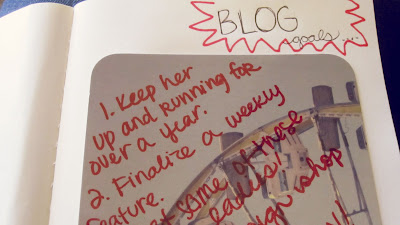 BLOG
goals...
1. Keep her
up and running for
over a year.
2. Finalize a weekly
feature.
some of those
ladies!
shop